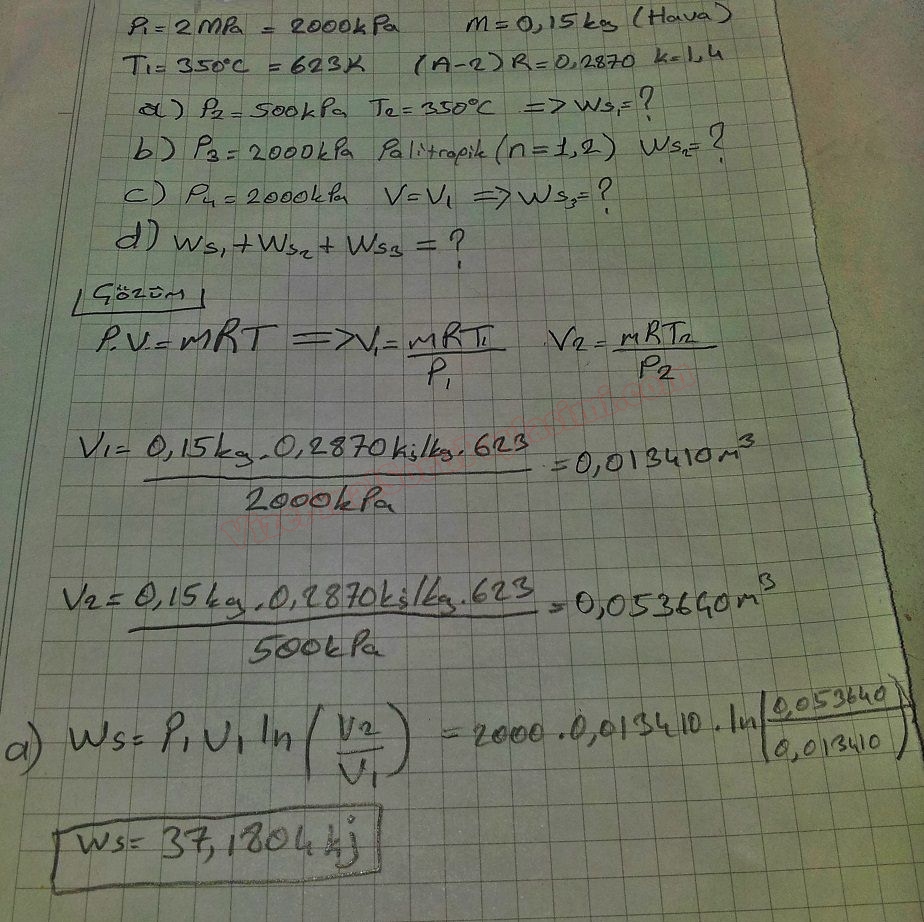 P₁ = 2 MPa = 2000kPa M = 0,15kg (Hava)
T₁ = 350°C = 623K (A-2) R = 0,2870 k=1,4
a) P₂ = 500kPa T₂ = 350°C => Ws₁ = ?
b) P₃ = 2000kPa Palitropik (n=1,2) Ws₂ = ?
c) P₄ = 2000kPa V = V₁ => Ws₃ = ?
d) Ws₁ + Ws₂ + Ws₃ = ?
Çözüm
P.V. = mRT => V₁ = mRT₁ / P₁ V₂ = mRT₂ / P₂
V₁ = 0,15kg.0,2870kj/kg.623 / 2000kPa = 0,013410m³
V₂ = 0,15kg.0,2870kj/kg.623 / 500kPa = 0,053640m³
a) Ws = P₁ V₁ ln (V₂ / V₁) = 2000.0,013410.ln (0,053640 / 0,013410)
Ws = 37,1804kj